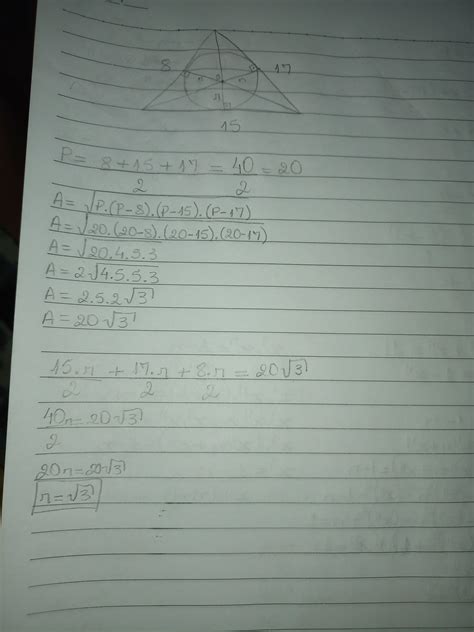 8 17
r r
r
15
P = 8+15+17/2 = 40/2 = 20
A = √P.(P-8).(P-15).(P-17)
A = √20.(20-8).(20-15).(20-17)
A = √20.4.5.3
A = 2√4.5.5.3
A = 2.5.2√3
A = 20√3
15.r/2 + 17.r/2 + 8.r/2 = 20√3
40r/2 = 20√3
20r = 20√3
r = √3